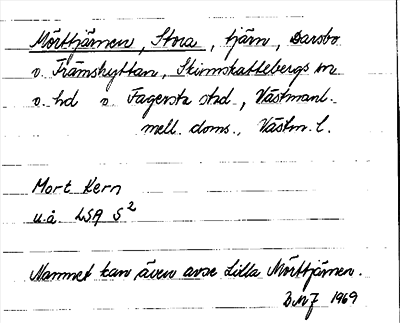 Mörttjärnen, Stora, tjärn, Darsbo
v. Främshyttan, Skinnskattebergs sn
v. hd o. Fagersta stad, Västmanl.
mell. doms., Västm. l.
Mort Kern
u.å. LSA S2
Namnet kan även avse Lilla Mörttjärnen.
1969